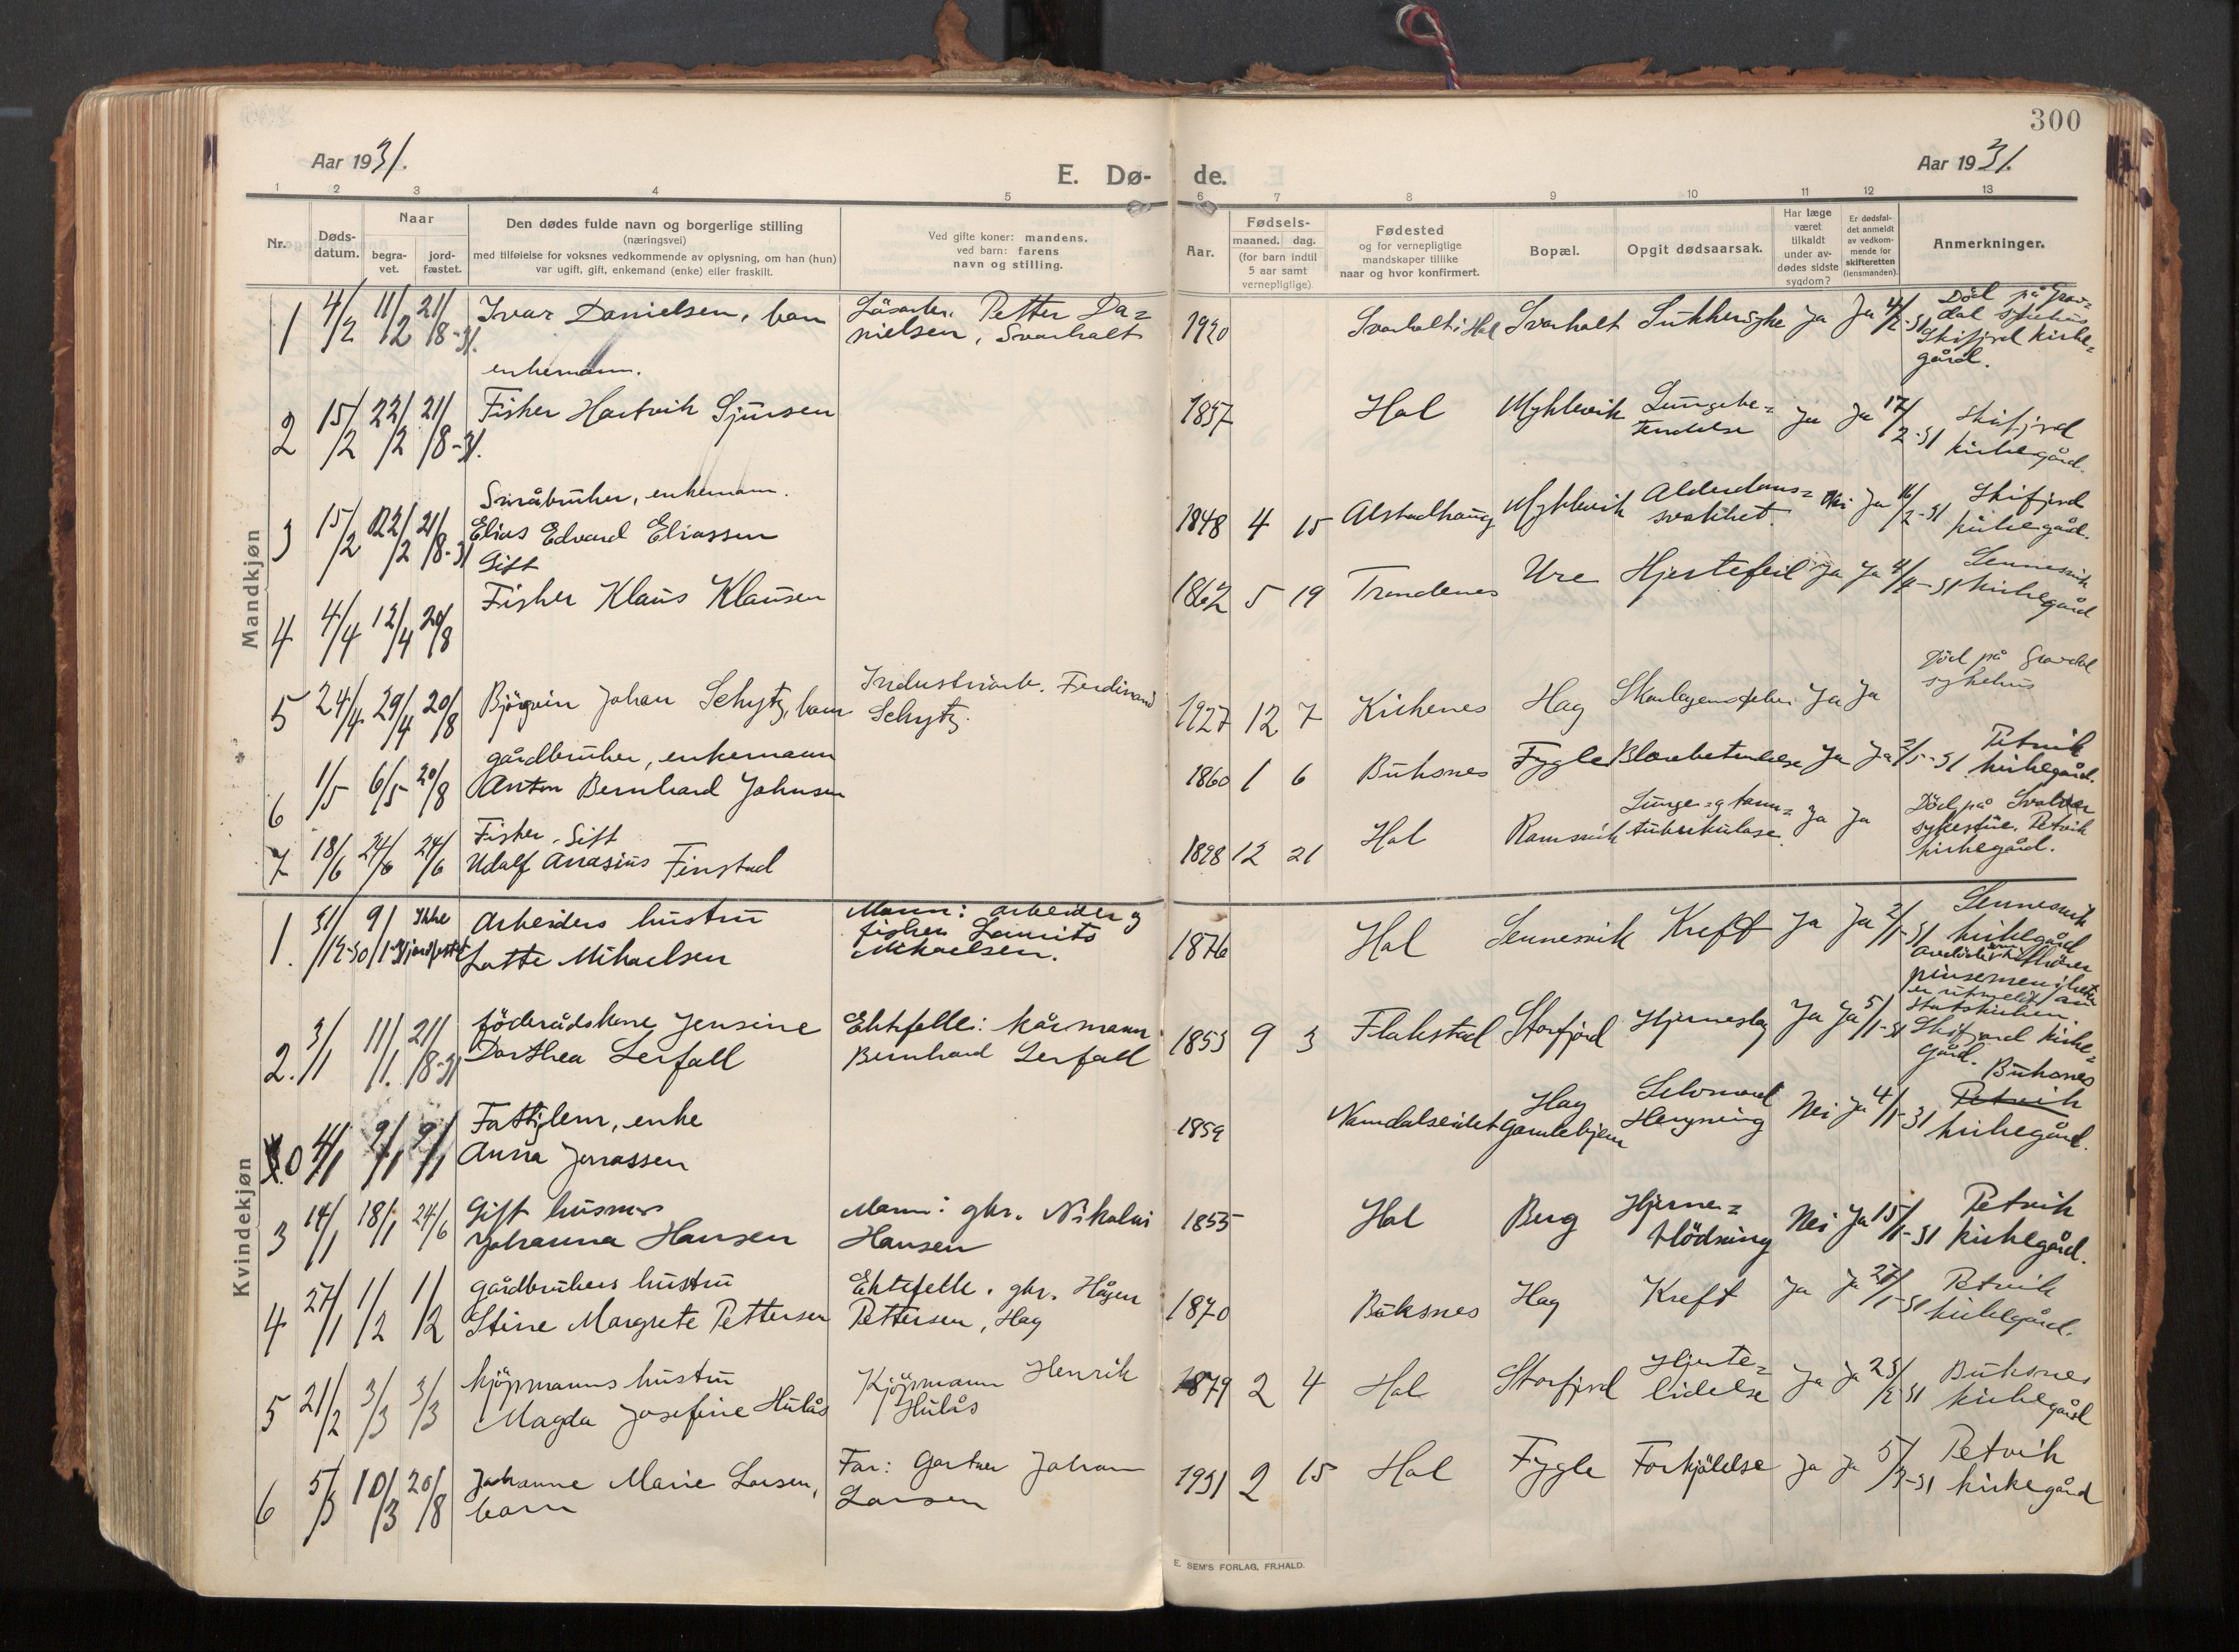 300
Aar 1931.
E. Dø- de.
Aar 1931.
1 2 3 4 5 6 7 8 9 10 11 12 13
Nr.
Døds-
datum.
Naar
begra-
vet.
jord-
fæstet.
Den dødes fulde navn og borgerlige stilling
(næringsvei)
med tilføielse for voksnes vedkommende av oplysning, om han (hun)
var ugift, gift, enkemand (enke) eller fraskilt.
Ved gifte koner: mandens.
ved barn: farens
navn og stilling.
Aar.
Fødsels-
maaned. dag.
(for barn indtil
5 aar samt
vernepligtige)
Fødested
og for vernepligtige
mandskaper tillike
naar og hvor konfirmert.
Bopæl.
Opgit dødsaarsak.
Har læge
været
tilkaldt
under av-
dødes sidste
sygdom?
Er dødsfal-
det anmeldt
av vedkom-
mende for
skifteretten
(lensmanden).
Anmerkninger.
Mandkjøn
1 4/2 11/2 21/8-31. Ivar Danielsen, barn
Petter Da=
nielsen, Svarholt
1920 Svarholt i Hol Svarholt Sukkersyke Ja Ja 4/2-31
Død på Grav=
dal sykehus
Skifjord kirke=
gård.
enkemann.
2 15/2 22/2 21/8-31. Fisker Hartvik Sjursen
1857 Hol Myklevik Lungebe=
tendelse Ja Ja 17/2-31
Skifjord
kirkegård.
Småbruker, enkemann.
3 15/2 22/2 21/8-31 Elias Edvard Eliassen
1848 4 15 Alstadhaug Myklevik Alderdoms=
svakhet. Nei Ja 16/2-31
Skifjord
kirkegård.
Gift
4 4/4 12/4 20/8 Fisker Klaus Klausen
1862 5 19 Trondenes Ure Hjertefeil Ja Ja 4/4-31
Sennesvik
kirkegård
5 24/4 29/4 20/8 Bjørgvin Johan Schytz, barn
Industriarb. Ferdinand
Schytz.
1927 12 7 Kirkenes Hag Skarlagensfeber Ja Ja
Død på Gravdal
sykehus
gårdbruker, enkemann
6 1/5 6/5 20/8 Anton Bernhard Johnsen
1860 1 6 Buksnes Fygle Blærebetendelse Ja Ja 2/5-31
Petvik
kirkegård.
Fisker. Gift
7 18/6 24/6 24/6 Udolf Anasius Finstad
1898 12 21 Hol Ramsvik Lunge- og tarm=
tuberkulose. Ja Ja
Død på Svolvær
sykestue. Petvik
kirkegård.
Kvindekjøn
1. 31/12-30 9/1-31 Ikke jordfestet
Arbeiders hustru
Lotte Mikaelsen
Mann: arbeider og
fisker Laurits
Mikaelsen.
1876 Hol Sennesvik Kreft Ja Ja 2/1-31
Sennesvik
kirkegård
Avdøde som tilhører
pinsemenigheten
er utmeldt av
statskirken.
2. 3/1 11/1. 21/8-31
föderådskone Jensine
Dorthea Lerfall
Ektefelle: kårmann
Bernhard Lerfall
1853 9 3 Flakstad Storfjord Hjerneslag Ja Ja 5/1-31
Skifjord kirke=
gård.
0 4/1 9/1 9/1
Fattiglem, enke
Anna Jonassen
1859 Namdalseidet Hag
Gamlehjem Selvmord
Hengning Nei Ja 4/1-31
Buksnes
Petvik
kirkegård.
3 14/1 18/1 24/6
Gift husmor
Johanna Hansen
Mann: gbr. Nikolai
Hansen
1855 Hol Berg Hjerne=
blödning Nei Ja 15/1-31
Petvik
kirkegård.
4 27/1 1/2 1/2
Gårdbrukers hustru
Stine Margrete Pettersen
Ektefelle. gbr. Hågen
Pettersen, Hag
1870 Buksnes Hag Kreft Ja Ja 27/1-31
Petvik
kirkegård.
5 21/2 3/3 3/3
Kjøpmanns hustru
Magda Josefine Hulås
Kjøpmann Henrik
Hulås
1879 2 4 Hol Storfjord Hjerte=
lidelse Ja Ja 23/2-31
Buksnes
kirkegård
6 5/3 10/3 20/8
Johanne Marie Larsen,
barn
Far: Gartner Johan
Larsen
1931 2 15 Hol Fygle Forkjølelse Ja Ja 5/3-31
Petvik
kirkegård
E. SEM'S FORLAG, FR.HALD.